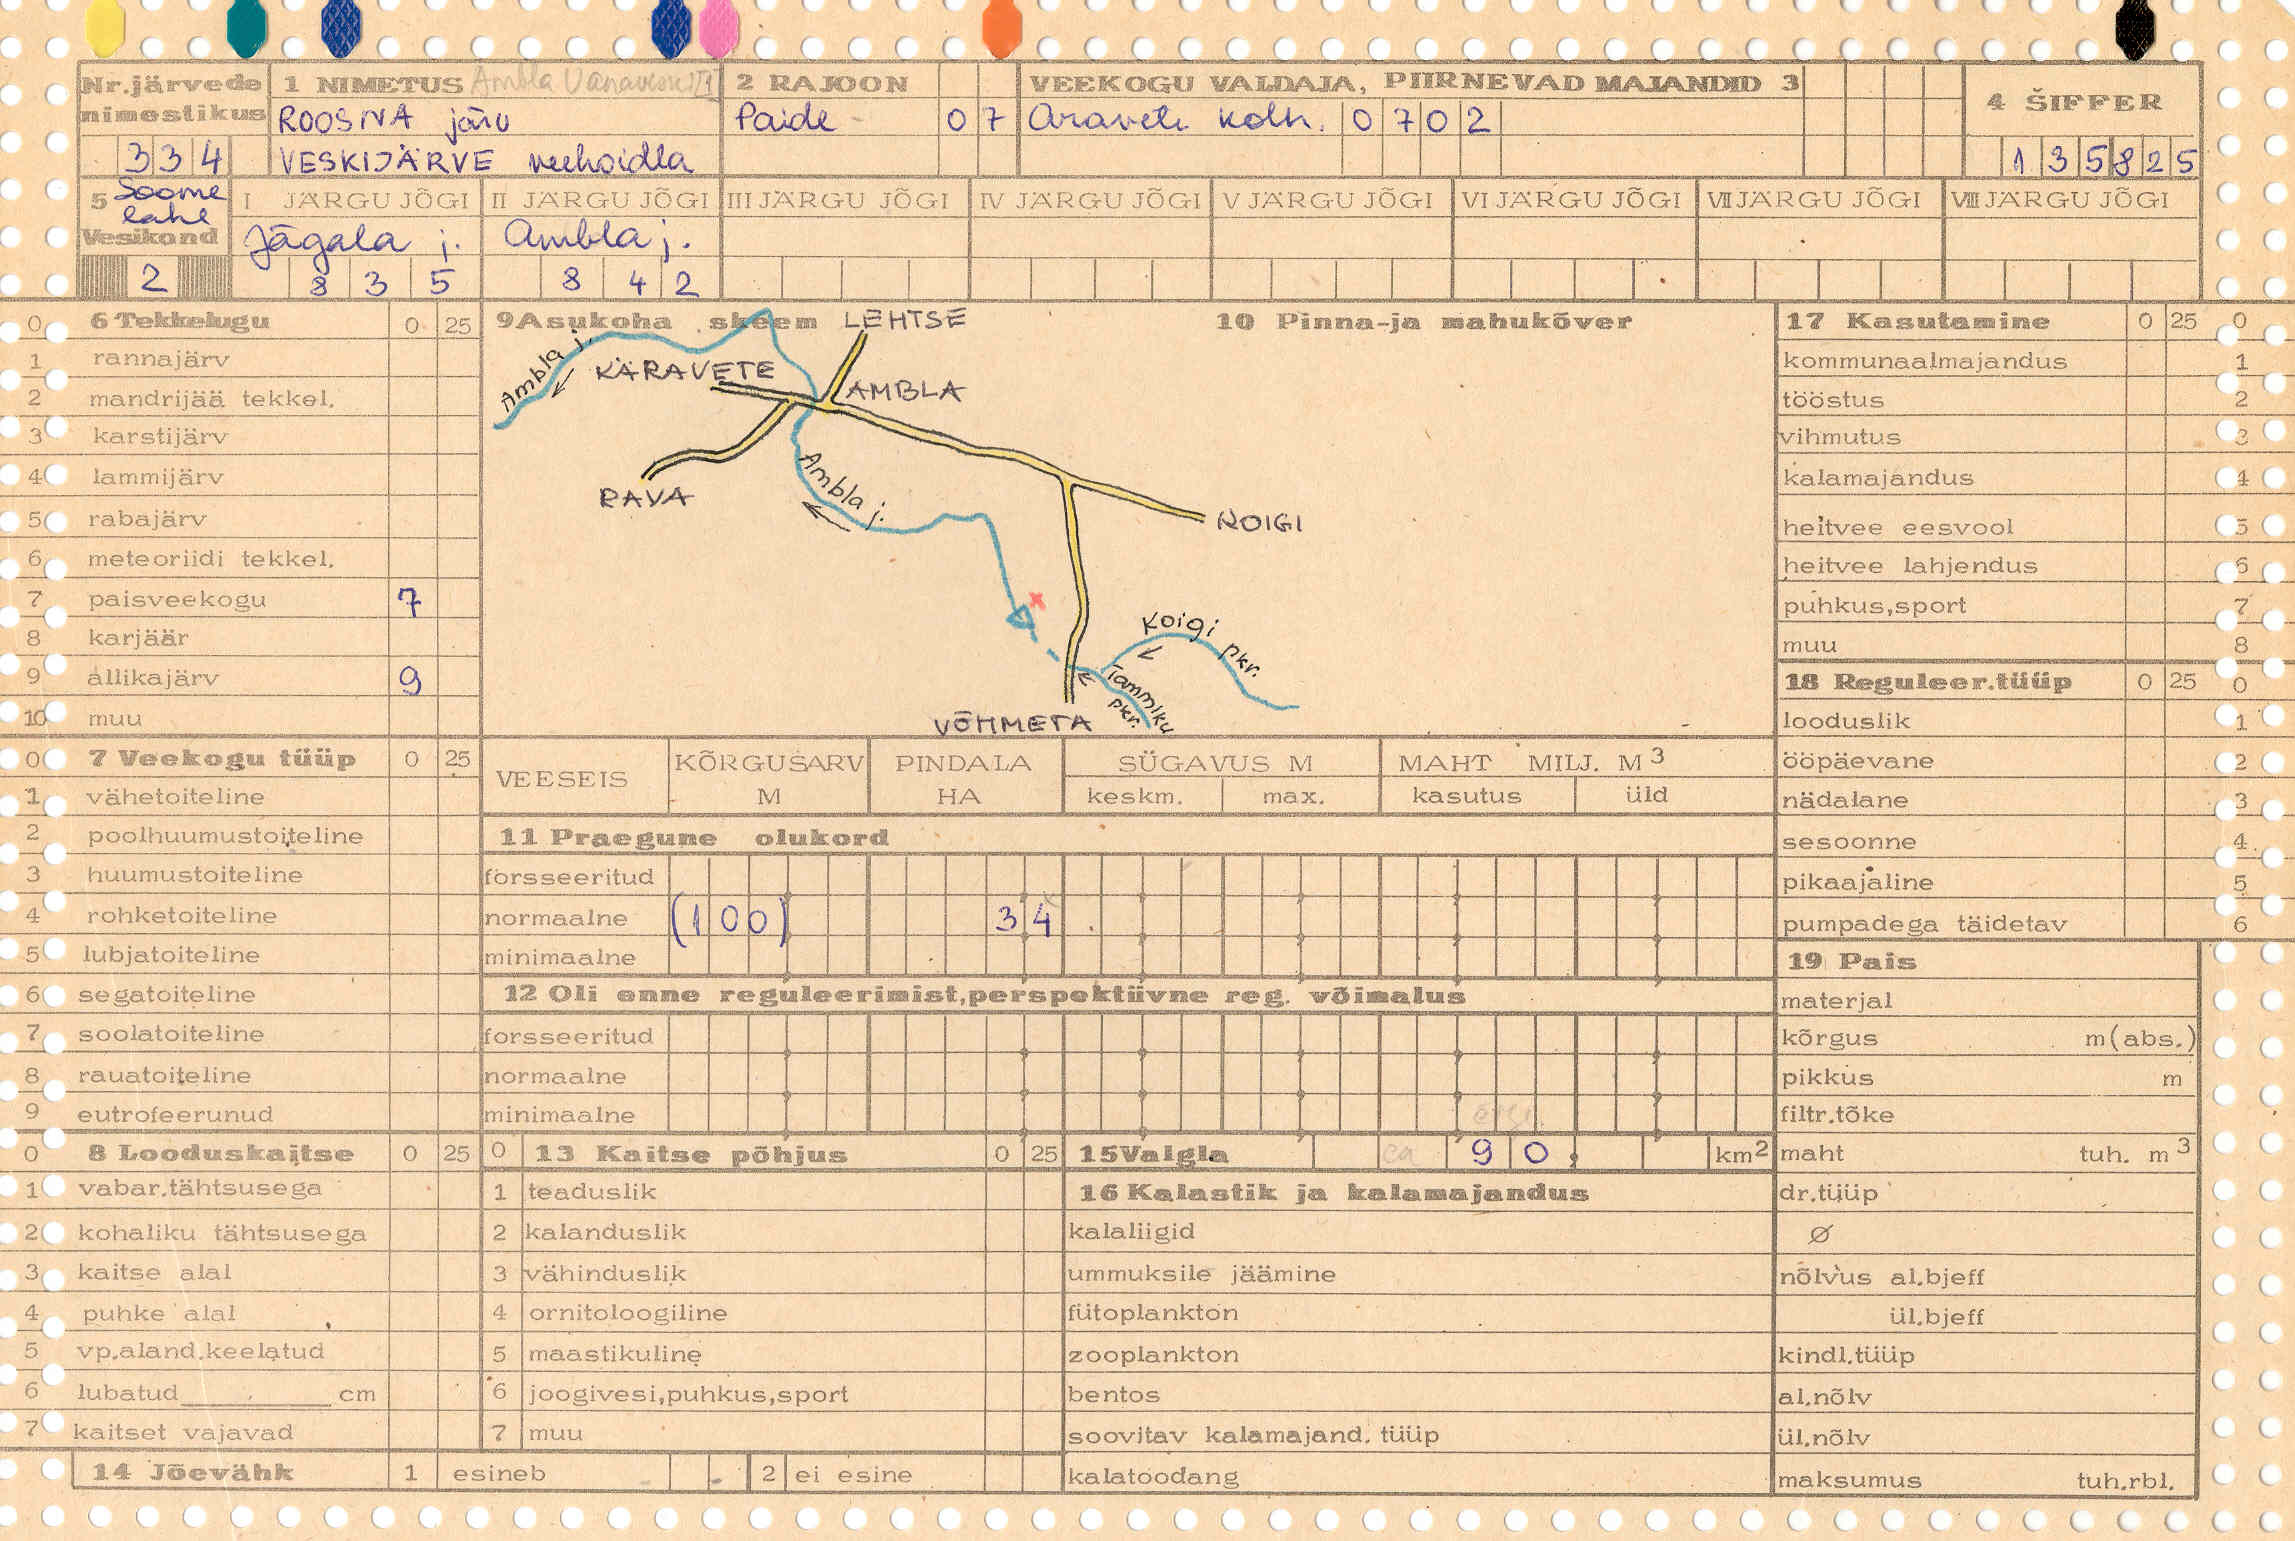 Nr.järvede nimestikus
334
1 NIMETUS Ambla Vanaveski
ROOSNA järv
VESKIJÄRVE veehoidla
2 RAJOON
Paide 07
VEEKOGU VALDAJA, PIIRNEVAD MAJANDID 3
Aravete kolh. 0702
4 ŠIFFER
135825
5 Soome lahe Vesikond
2
I JÄRGU JÕGI
Jägala j.
835
II JÄRGU JÕGI
Ambla j.
842
III JÄRGU JÕGI
IV JÄRGU JÕGI
V JÄRGU JÕGI
VI JÄRGU JÕGI
VII JÄRGU JÕGI
VIII JÄRGU JÕGI
0 6 Tekkelugu 0 25
1 rannajärv
2 mandrijää tekkel.
3 karstijärv
4 lammijärv
5 rabajärv
6 meteoriidi tekkel.
7 paisveekogu 7
8 karjäär
9 allikajärv 9
10 muu
0 7 Veekogu tüüp 0 25
1 vähetoiteline
2 poolhuumustoiteline
3 huumustoiteline
4 rohketoiteline
5 lubjatoiteline
6 segatoiteline
7 soolatoiteline
8 rauatoiteline
9 eutrofeerunud
0 8 Looduskaitse 0 25
1 vabar.tähtsusega
2 kohaliku tähtsusega
3 kaitse alal
4 puhke alal
5 vp.aland.keelatud
6 lubatud______ cm
7 kaitset vajavad
9 Asukoha skeem
10 Pinna-ja mahukõver
LEHTSE
Ambla j.
KÄRAVETE
AMBLA
RAVA
Ambla j.
KOIGI
Koigi pkr.
Tammiku pkr.
VÕHMETA
VEESEIS
KÕRGUSARV M
PINDALA HA
SÜGAVUS M
keskm. max.
MAHT MILJ. M3
kasutus üld
11 Praegune olukord
forsseeritud
normaalne (100) 34
minimaalne
12 Oli enne reguleerimist,perspektiivne reg. võimalus
forsseeritud
normaalne
minimaalne
0 13 Kaitse põhjus 0 25
1 teaduslik
2 kalanduslik
3 vähinduslik
4 ornitoloogiline
5 maastikuline
6 joogivesi,puhkus,sport
7 muu
14 Jõevähk 1 esineb 2 ei esine
15 Valgla ca 90, km2
16 Kalastik ja kalamajandus
kalaliigid
ummuksile jäämine
fütoplankton
zooplankton
bentos
soovitav kalamajand. tüüp
kalatoodang
17 Kasutamine 0 25 0
kommunaalmajandus 1
tööstus 2
vihmutus 3
kalamajandus 4
heitvee eesvool 5
heitvee lahjendus 6
puhkus,sport 7
muu 8
18 Reguleer.tüüp 0 25 0
looduslik 1
ööpäevane 2
nädalane 3
sesoonne 4
pikaajaline 5
pumpadega täidetav 6
19 Pais
materjal
kõrgus m(abs.)
pikkus m
filtr.tõke
maht tuh. m3
dr.tüüp
Ø
nõlvus al.bjeff
ül.bjeff
kindl.tüüp
al.nõlv
ül.nõlv
maksumus tuh.rbl.